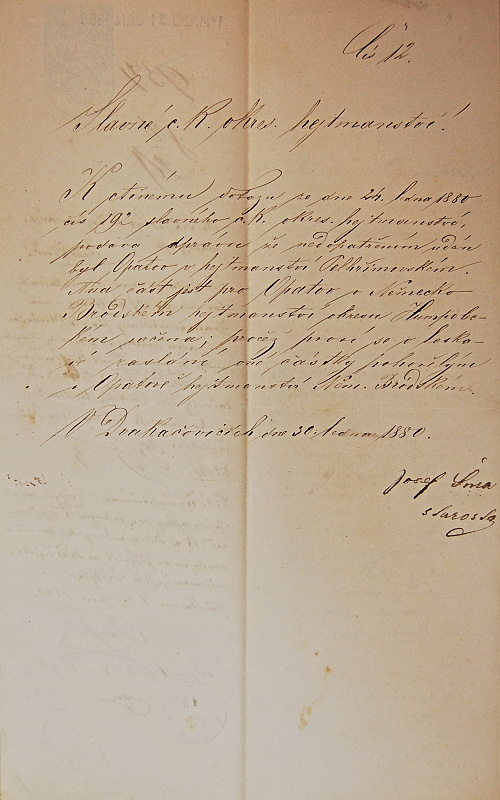 Čís 12.
Slavné c. k. okres. hejtmanství!
K ctěnému dotazu ze dne 24. ledna 1880
čís 192 slavného c. k. okres. hejtmanství,
podává zpráva že nedopatřením udán
byl Opatov v hejtmanství Pelhřimovském.
část jest pro Opatov v Německo
Brodském hejtmanství okresu Humpole-
ckém určena; pročež prosí se o laska-
vé zaslání oné částky pohořelým
v Opatově hejtmanství Něm. Brodském.
V dne 30. ledna 1880.
Josef
starosta